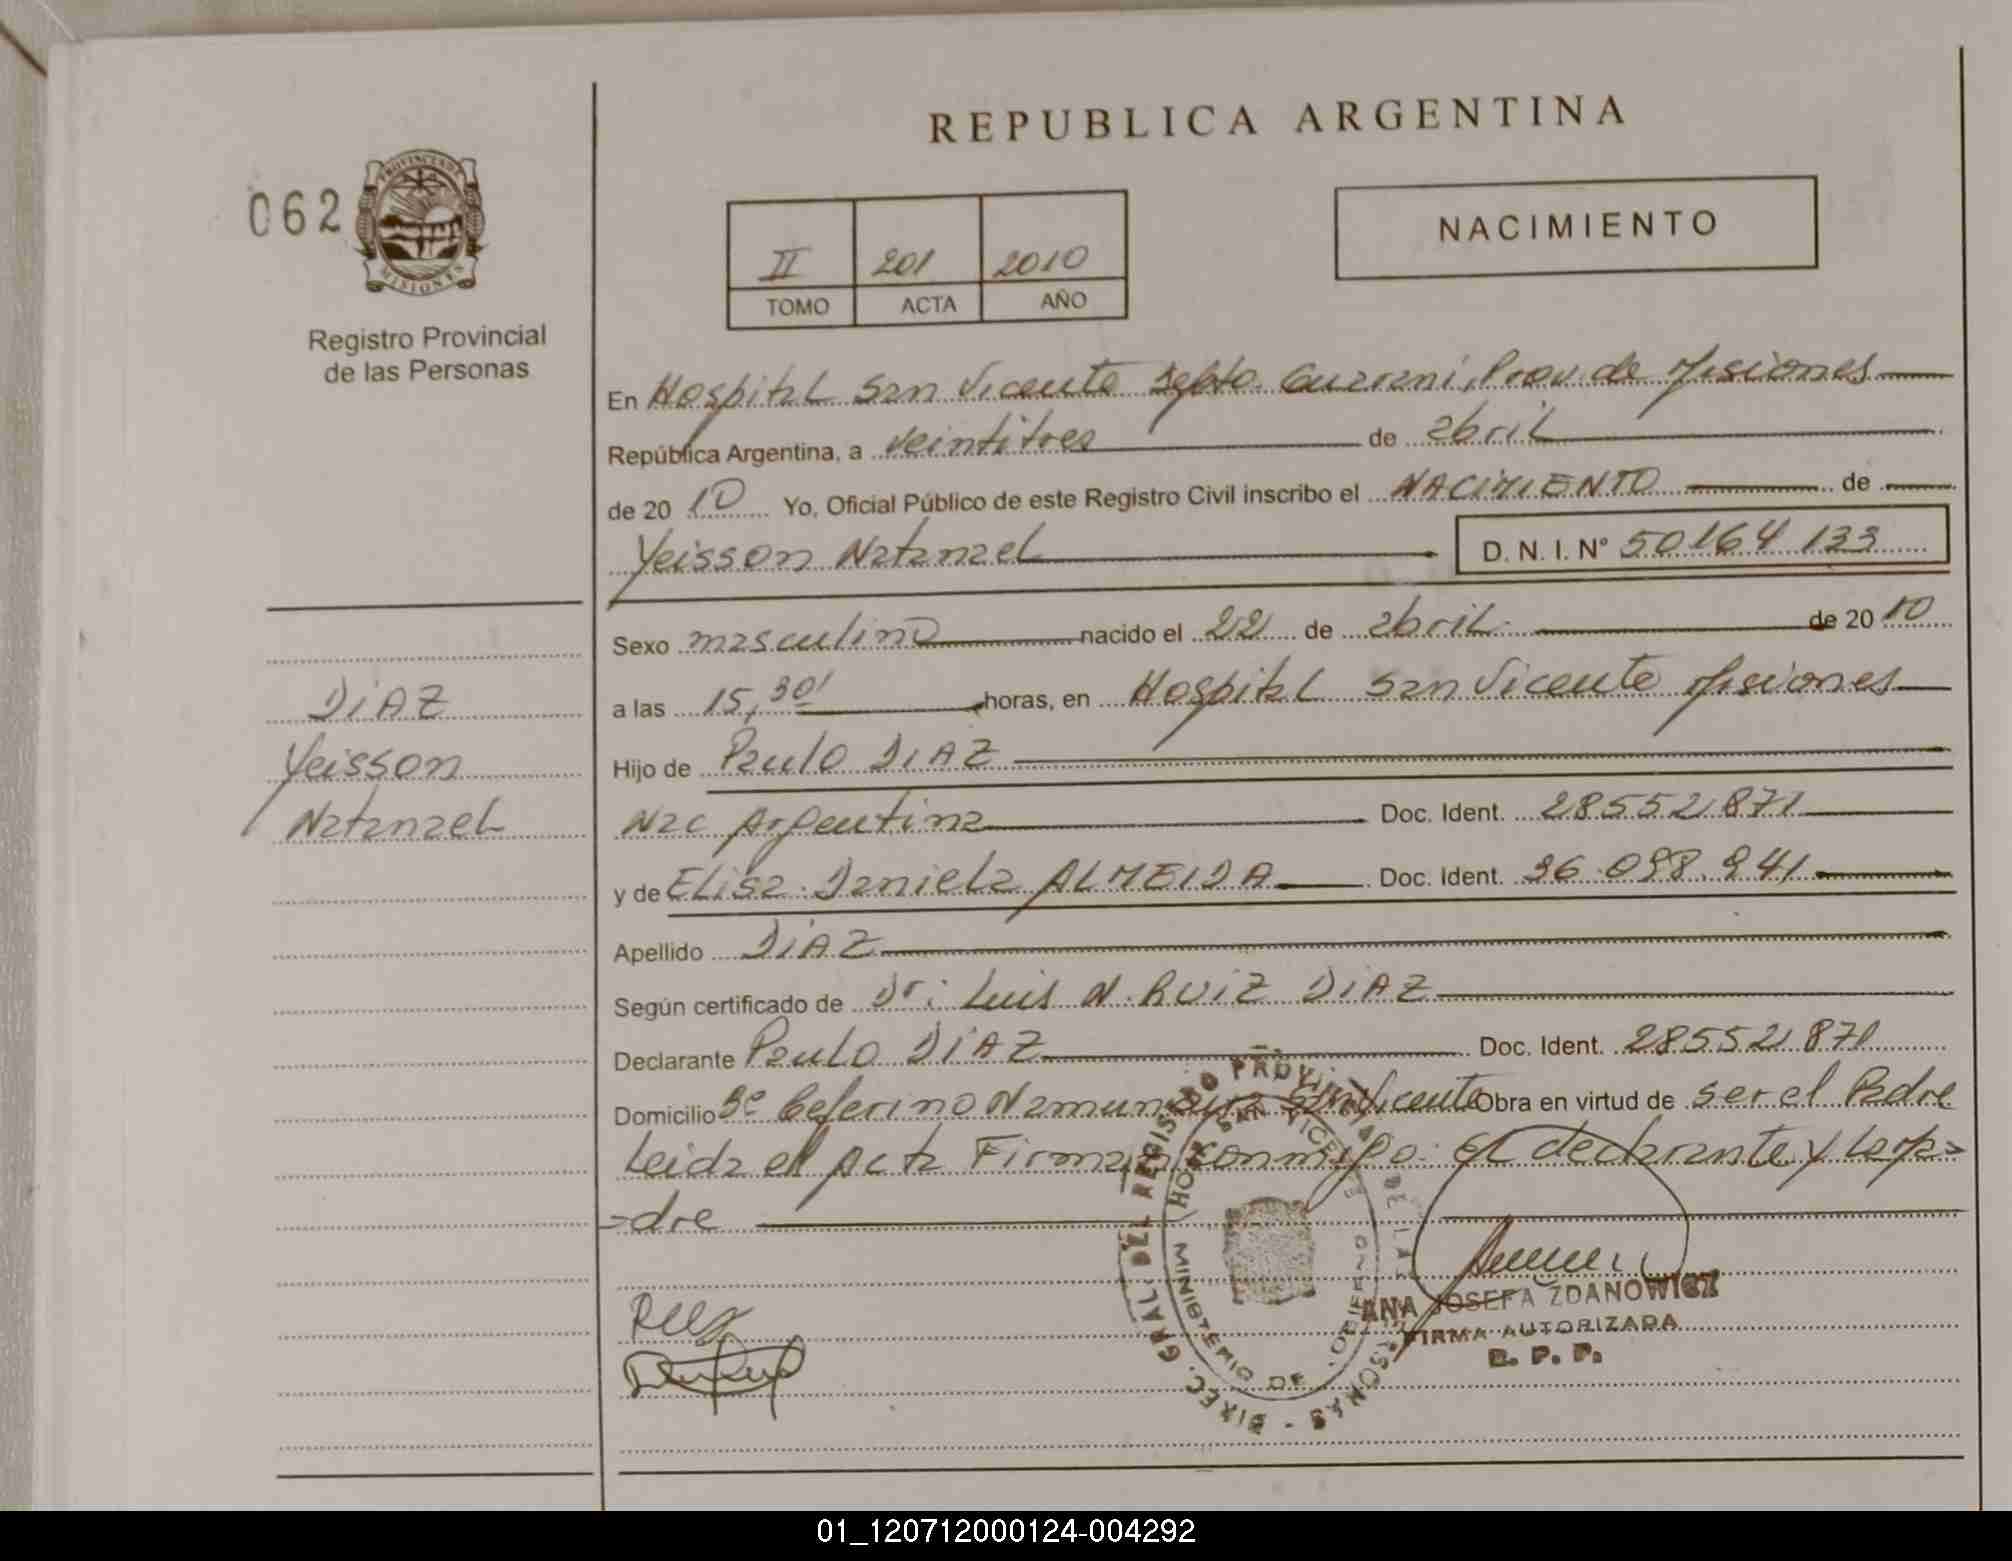 REPUBLICA ARGENTINA
062
PROVINCIA DE
MISIONES
Registro Provincial
de las Personas
II 201 2010
TOMO ACTA AÑO
NACIMIENTO
En Hospital San Vicente Depto. Guarani, Prov. de Misiones
República Argentina, a veintitres de abril
de 2010 Yo, Oficial Público de este Registro Civil inscribo el NACIMIENTO de
Yeisson Natanael D. N. I. Nº 50164 133
Sexo masculino nacido el 22 de abril de 2010
a las 15,30' horas, en Hospital San Vicente Misiones
Hijo de Paulo DIAZ
Nac Argentina Doc. Ident. 28552871
y de Elisa Daniela ALMEIDA Doc. Ident. 36.098.941
Apellido DIAZ
Según certificado de Dr: Luis N. RUIZ DIAZ
Declarante Paulo DIAZ Doc. Ident. 28552 871
Domicilio Bº Ceferino Namuncura San Vicente Obra en virtud de ser el Padre
Leida el Acta Firman conmigo: el declarante y la Ma=
=dre
DIAZ
Yeisson
Natanael
DIREC. GRAL. DEL REGISTRO PROVINCIAL DE LAS PERSONAS
HOSP. SAN VICENTE
MINISTERIO DE GOBIERNO
ANA JOSEFA ZDANOWICZ
FIRMA AUTORIZADA
R. P. P.
01_120712000124-004292